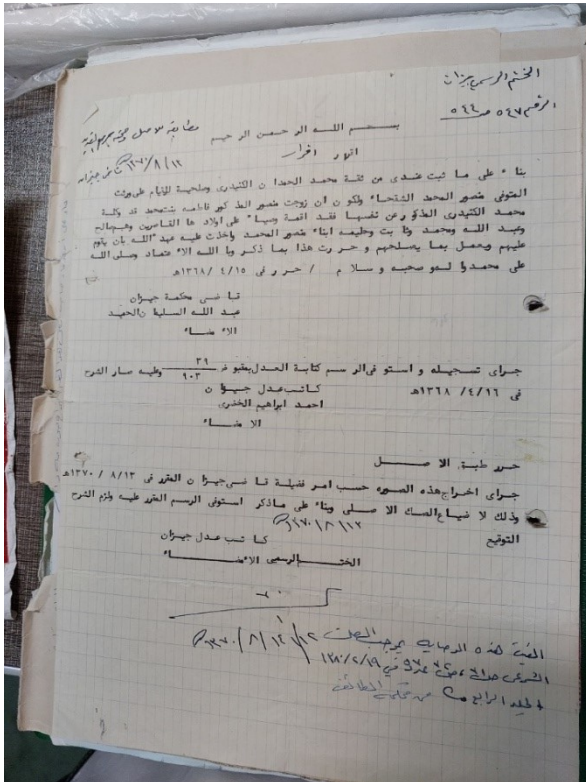 الختم الرسمي بجيزان
الرقم ٥٤٧ ص ٥٤٤
بسم الله الرحمن الرحيم
مطابقة للاصل
اقرار
١٣٧٠/٨/١٢ قاضي جيزان
بناء على ما ثبت عندي من ثقة محمد الحمدان الكثيدري وصلحية للقيام على ورثت
المتوفى منصور المحمد الشتحاء ولكون ان زوجت منصور المذكور فاطمه بنت محمد قد وكلة
محمد الكثيدري المذكور عن نفسها فقد اقمة وصيا على اولادها القاصرين وهم صالح
وعبد الله ومحمد وثابت وطيفه ابناء منصور المحمد واخذت عليه عهد الله بان يقوم
عليهم ويعمل بما يصلحهم وحررت هذا بما ذكر وبا الله الاعتماد وصلى الله
على محمد واله وصحبه وسلام / حرر في ١٣٦٨/٤/١٥هـ
قاضي محكمة جيزان
عبد الله السليمان الحميد
الامضاء
جراى تسجيله واستوفى الرسم كتابة العدل بعقبوض ٣٩ / ٩٠٣ وعليه صار الشرح
في ١٣٦٨/٤/١٦هـ كاتب عدل جيزان
احمد ابراهيم الخذرى
الامضاء
حرر طبق الاصل
جراى اخراج هذه الصوره حسب امر فضيلة قاضي جيزان المقرر في ١٣٧٠/٨/١٣هـ
وذلك لاضياع الصك الاصلى وبناء على ماذكر استوفى الرسم المقرر عليه ولزم الشرح
١٣٧٠/٨/١٢
التوقيع كاتب عدل جيزان
الختم الرسمي الامضاء
الغية هذه الوصايه بموجب الصك ١٢ ١٣٧٠/٨/١٢
الشرعي في ١٣٨٠/٢/١٩
الجلد الرابع من محكمة الطائف